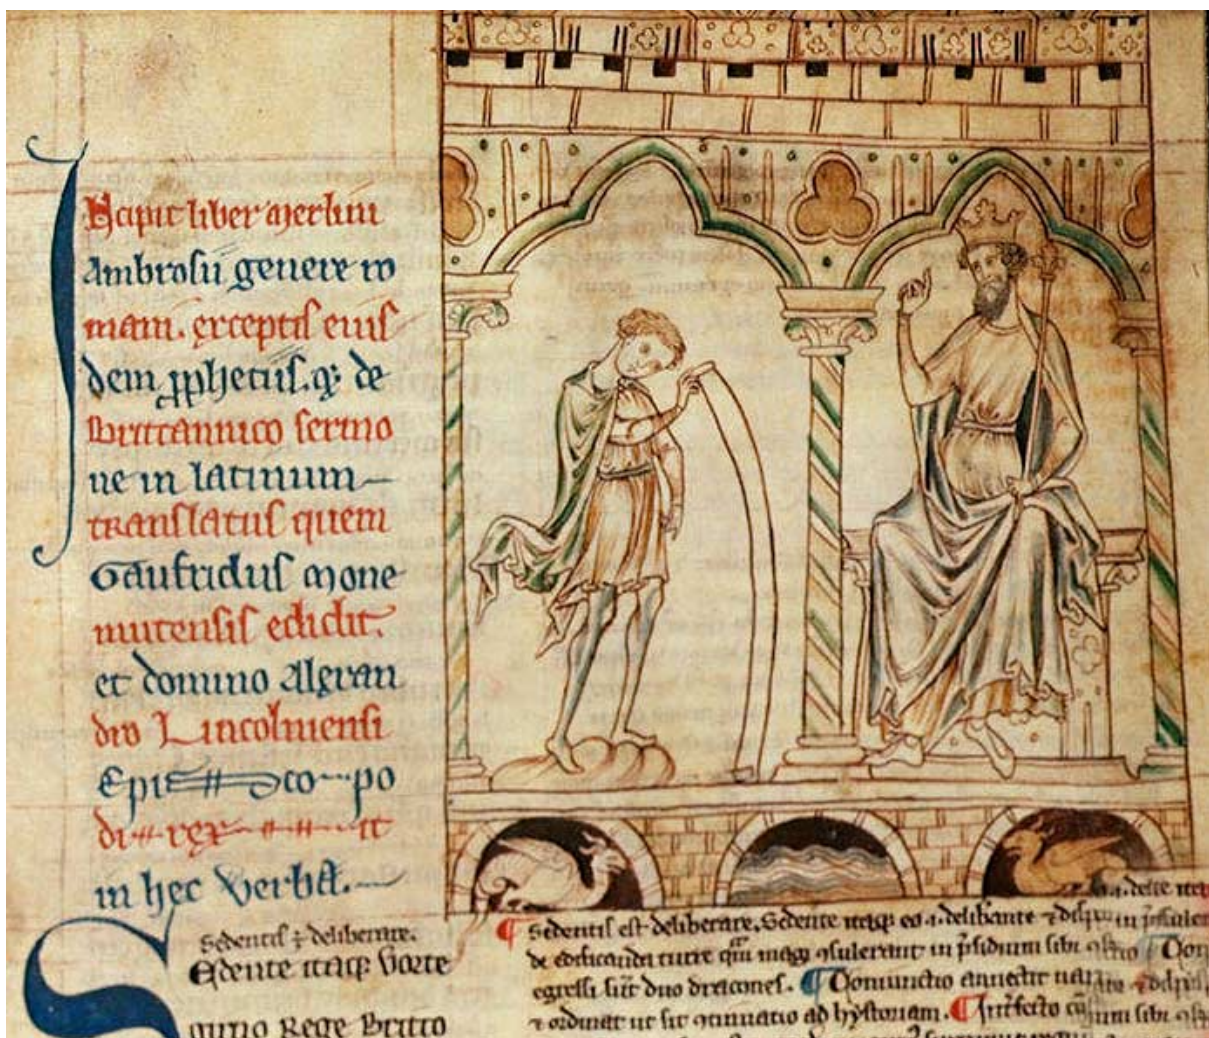 Incipit liber merlini
Ambrosii genere ro
mani. exceptis eius
dem pphetiis. q; de
Britannico sermo
ne in latinum
translatus quem
Gaufridus mone
mutensis edidit.
et domino Alexan
dro Lincolniensi
Epi s co po
di rex it
in hec verba.
Sedentis ÷ deliberare.
Sedente itaq; Vorte
girno Rege Britto
¶ Sedentis est deliberare. Sedente itaq; eo
de edificanda turre magi in p̄sidium sibi
egressi sūt duo dracones. ¶ Coniunctio annectit
⁊ ordinat ut sit ꝯtinuatio ad hystoriam. ¶ Int̄fecto